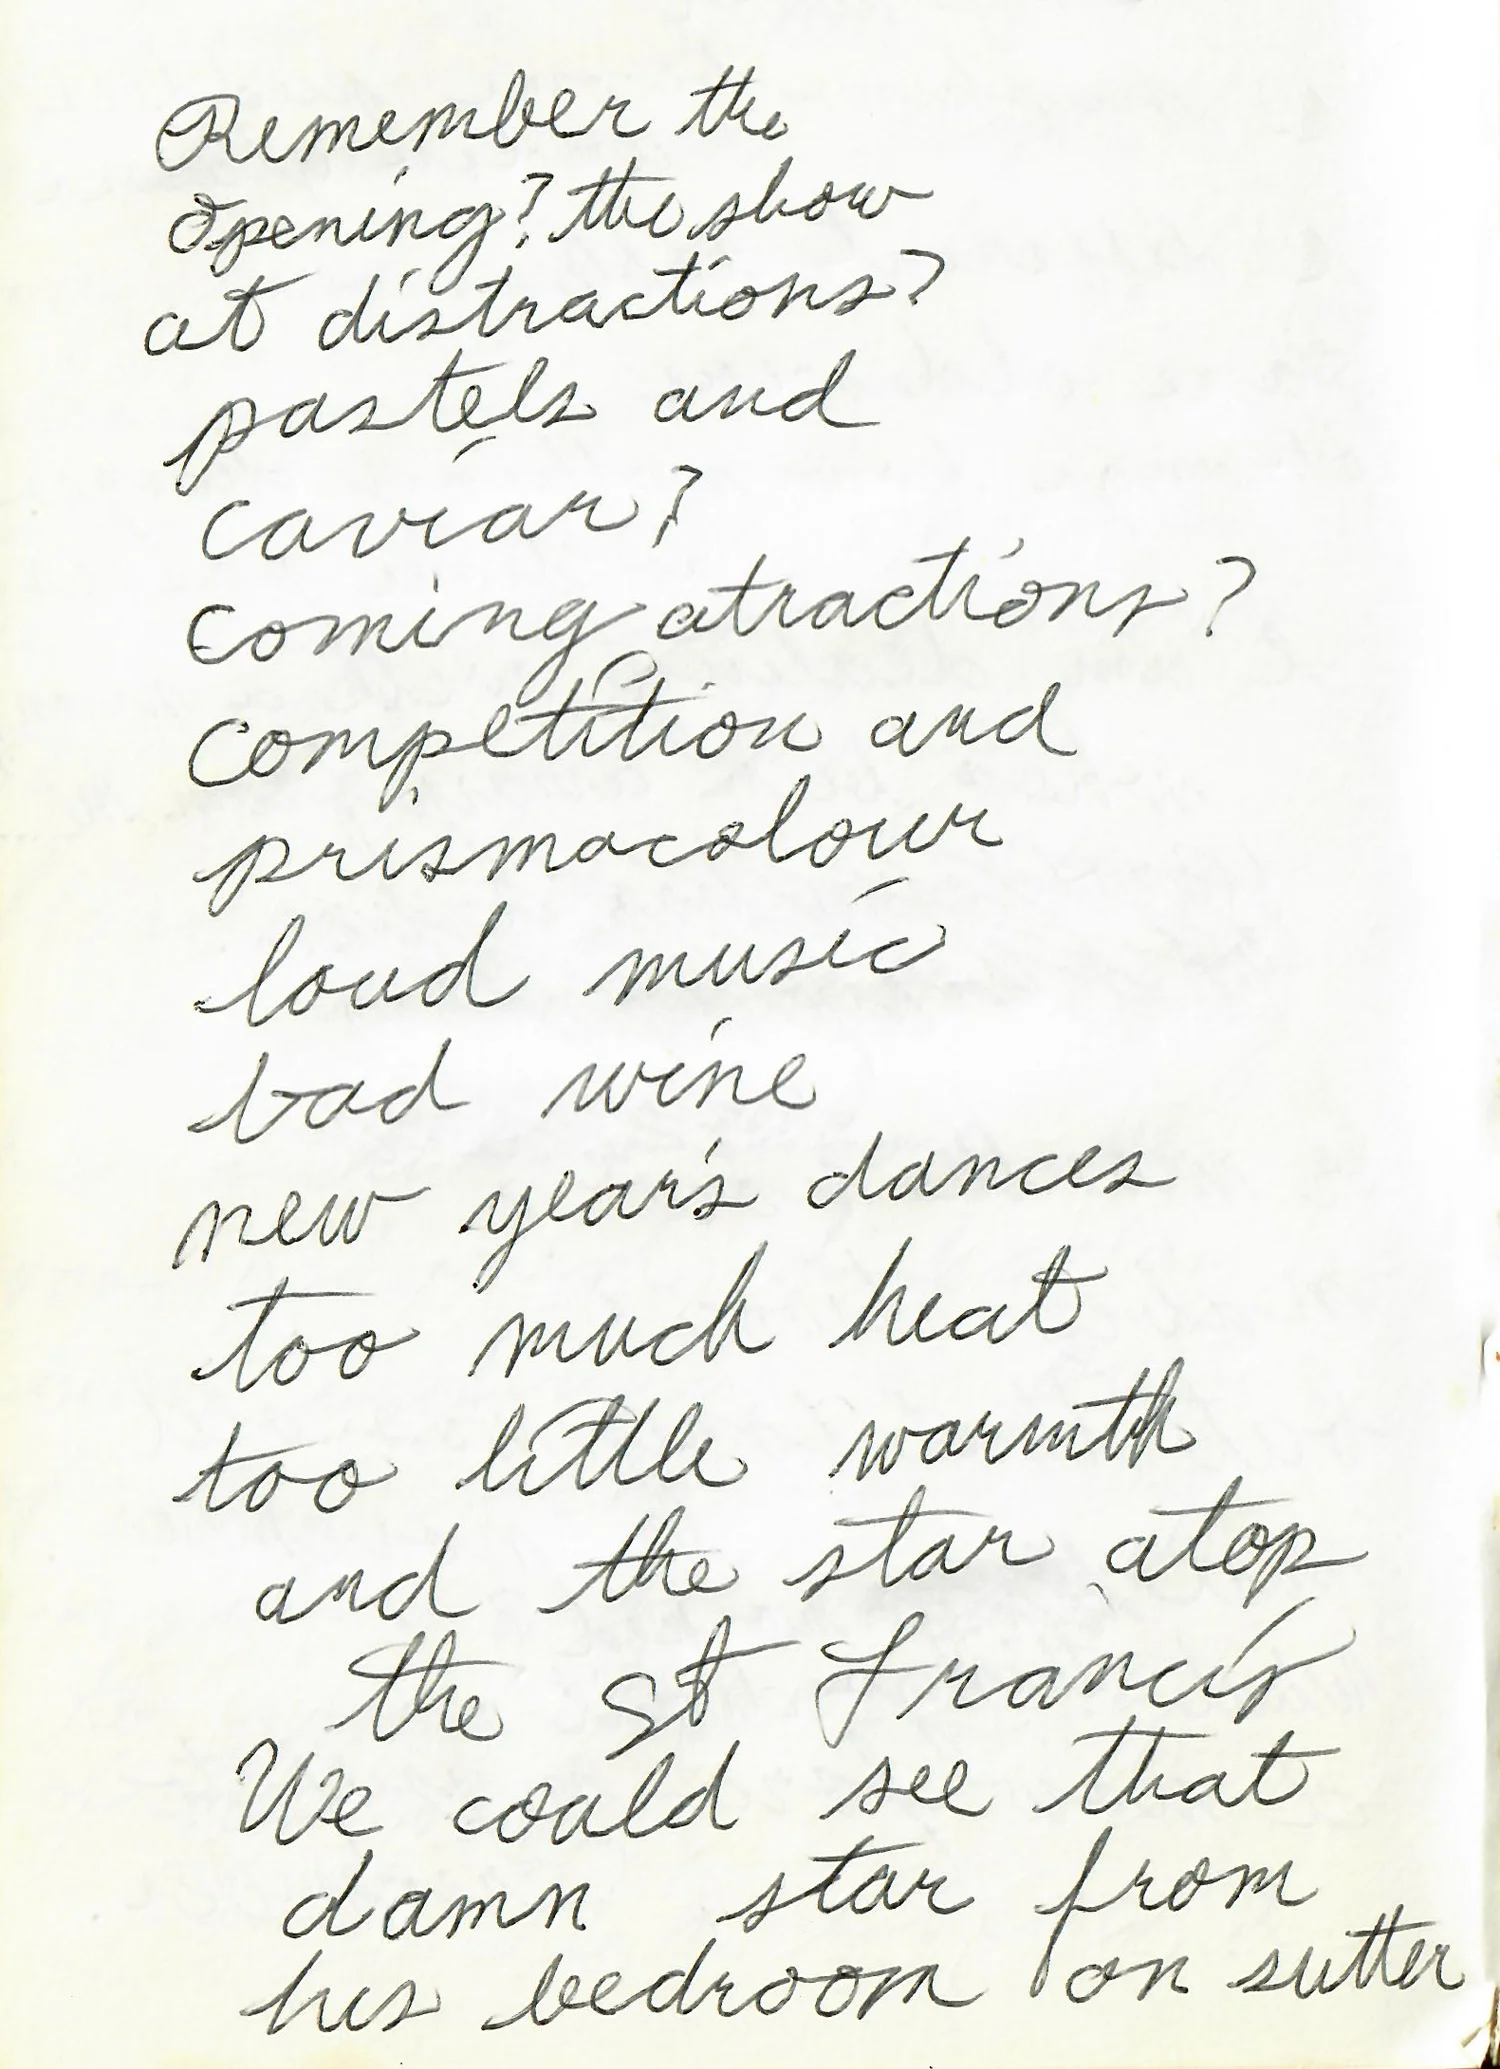 Remember the
opening? the show
at distractions?
pastels and
caviar?
coming atractions?
Competition and
prismacolour
loud music
bad wine
new year's dances
too much heat
too little warmth
and the star atop
the St Francis
We could see that
damn star from
his bedroom on sutter